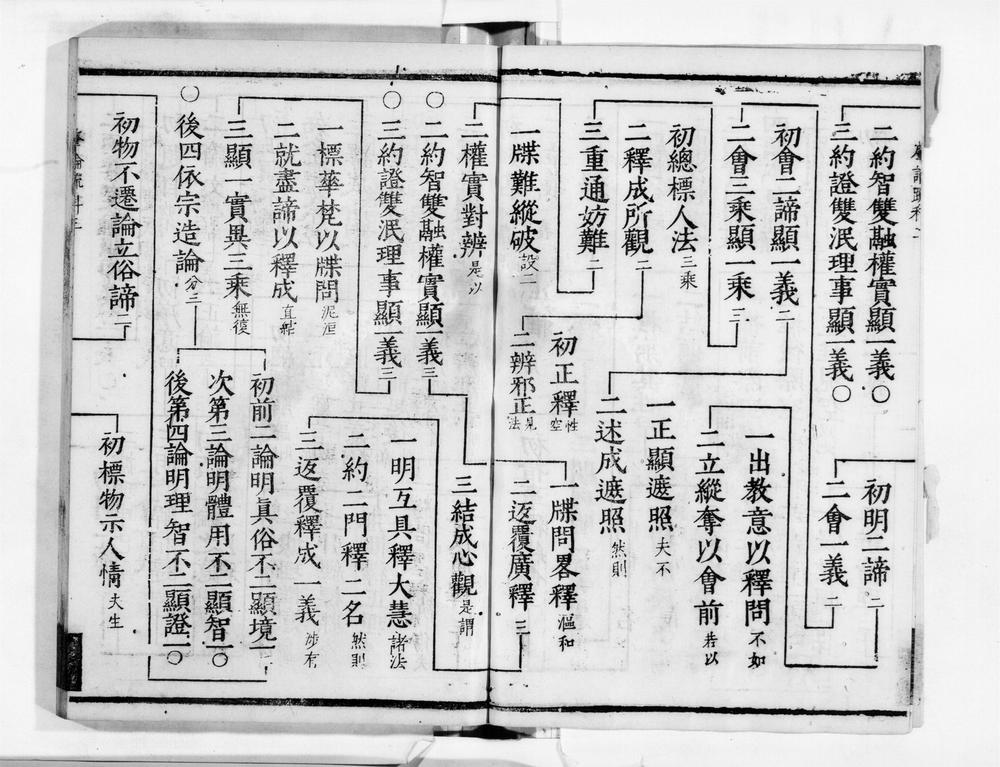 二約智雙融權實顯一義〇
三約證雙泯理事顯一義〇
初明二諦二
二會一義二
初會二諦顯一義二
二會三乘顯一乘三
一出教意以釋問不如
二立縱奪以會前若以
初總標人法三乘
二釋成所觀二
三重通妨難二
一正顯遮照夫不
二述成遮照然則
一牒難縱破設二
初正釋性空
二辨邪正見法
一牒問畧釋漚和
二返覆廣釋三
二權實對辨是以
〇二約智雙融權實顯一義三
〇三約證雙泯理事顯一義三
三結成心觀是謂
一明互具釋大慧諸法
二約二門釋二名然則
三返覆釋成一義涉有
一標華梵以牒問泥洹
二就盡諦以釋成直
三顯一實異三乘無復
〇後四依宗造論分三
初前二論明眞俗不二顯境二
次第三論明體用不二顯智一〇
後第四論明理智不二顯證一〇
初物不遷論立俗諦二
初標物示人情夫生